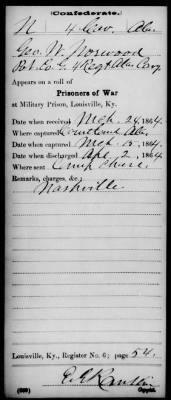 Confederate.
N 4 Cav. Ala.
Geo. W. Norwood
Pvt. Co. G. 4 Regt Ala Cavy
Appears on a roll of
Prisoners of War
at Military Prison, Louisville, Ky.
Date when received Mch 24, 1864.
Where captured Courtland Ala.
Date when captured Mch 5, 1864.
Date when discharged Apl 2, 1864
Where sent Camp Chase.
Remarks, charges, &c.:
Nashville.
Louisville, Ky., Register No. 6; page 54.
Copyist.